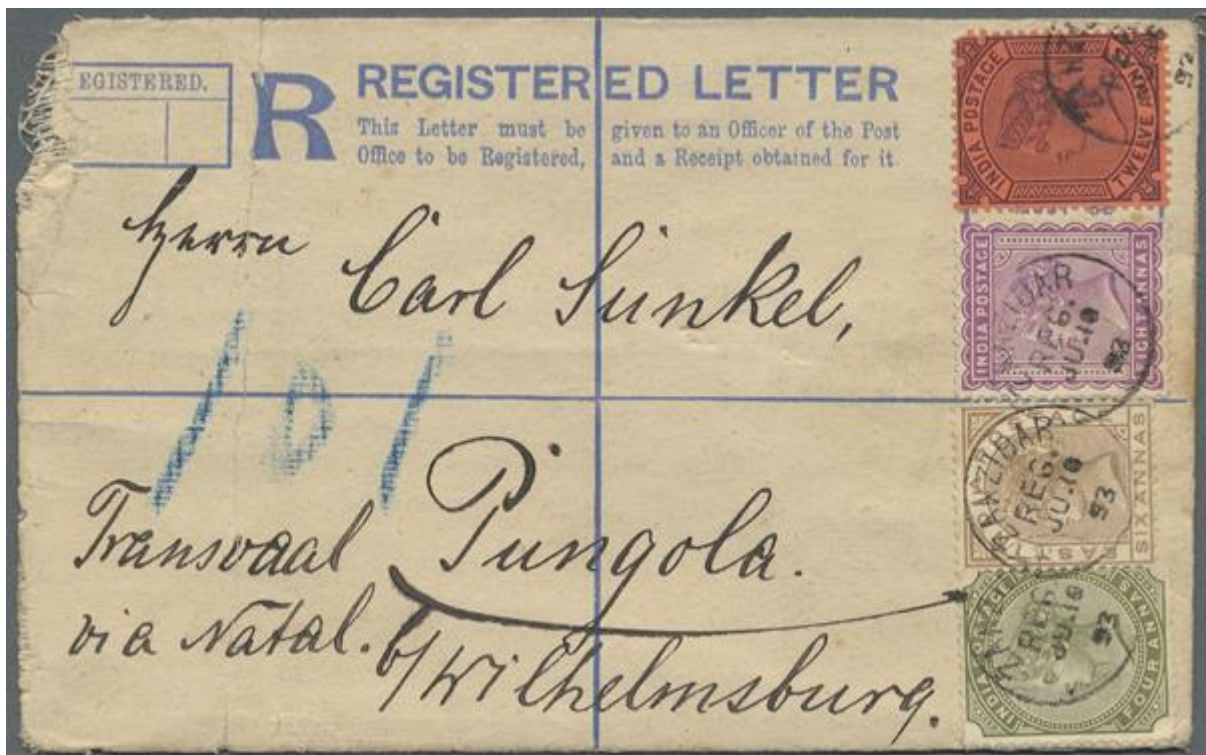 EGISTERED.
R REGISTERED LETTER
This Letter must be given to an Officer of the Post
Office to be Registered, and a Receipt obtained for it
Herrn Carl Sünkel,
101
Transvaal Pungola.
via Natal. b/Wilhelmsburg.
INDIA POSTAGE
TWELVE ANNAS
INDIA POSTAGE
EIGHT ANNAS
ZANZIBAR
REG.
JU.10
93
EAST
SIX ANNAS
ZANZIBAR
REG.
JU.10
93
INDIA POSTAGE
FOUR ANNAS
REG.
JU.10
93